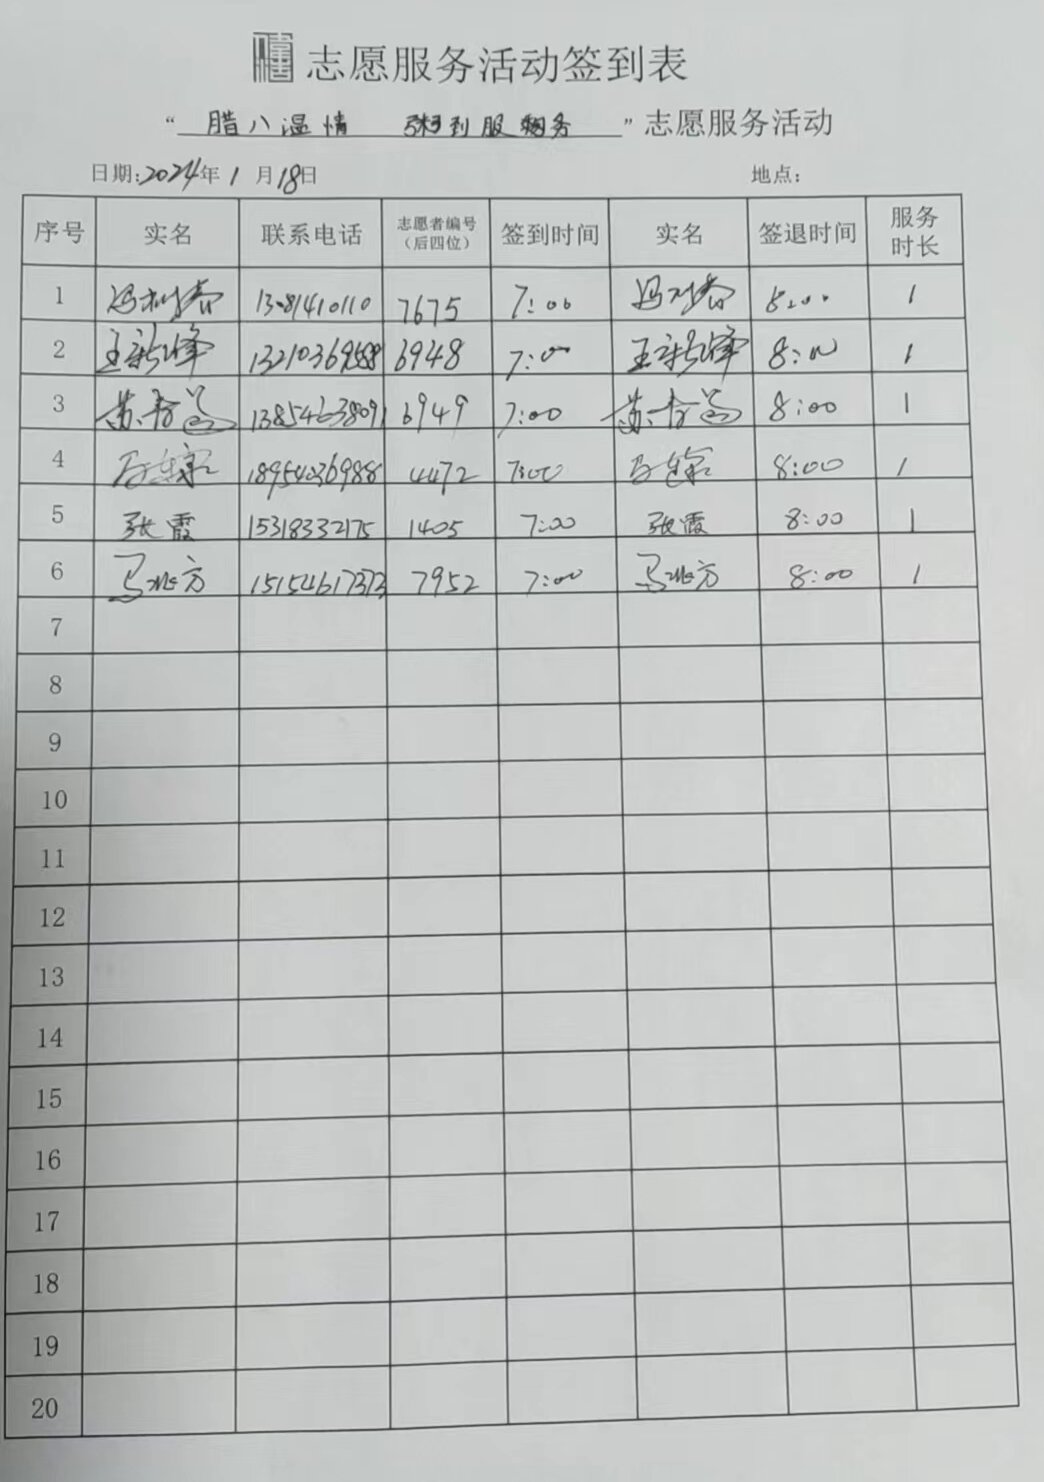 志愿服务活动签到表
“腊八温情 粥到服务”志愿服务活动
日期:2024年1月18日 地点:
序号 实名 联系电话 志愿者编号（后四位） 签到时间 实名 签退时间 服务时长
1 7675 7:00 8:00 1
2 6948 7:00 8:00 1
3 13854638091 6949 7:00 8:00 1
4 18954036988 4472 7:00 8:00 1
5 张霞 15318332175 1405 7:00 张霞 8:00 1
6 15154617373 7952 7:00 8:00 1
7
8
9
10
11
12
13
14
15
16
17
18
19
20